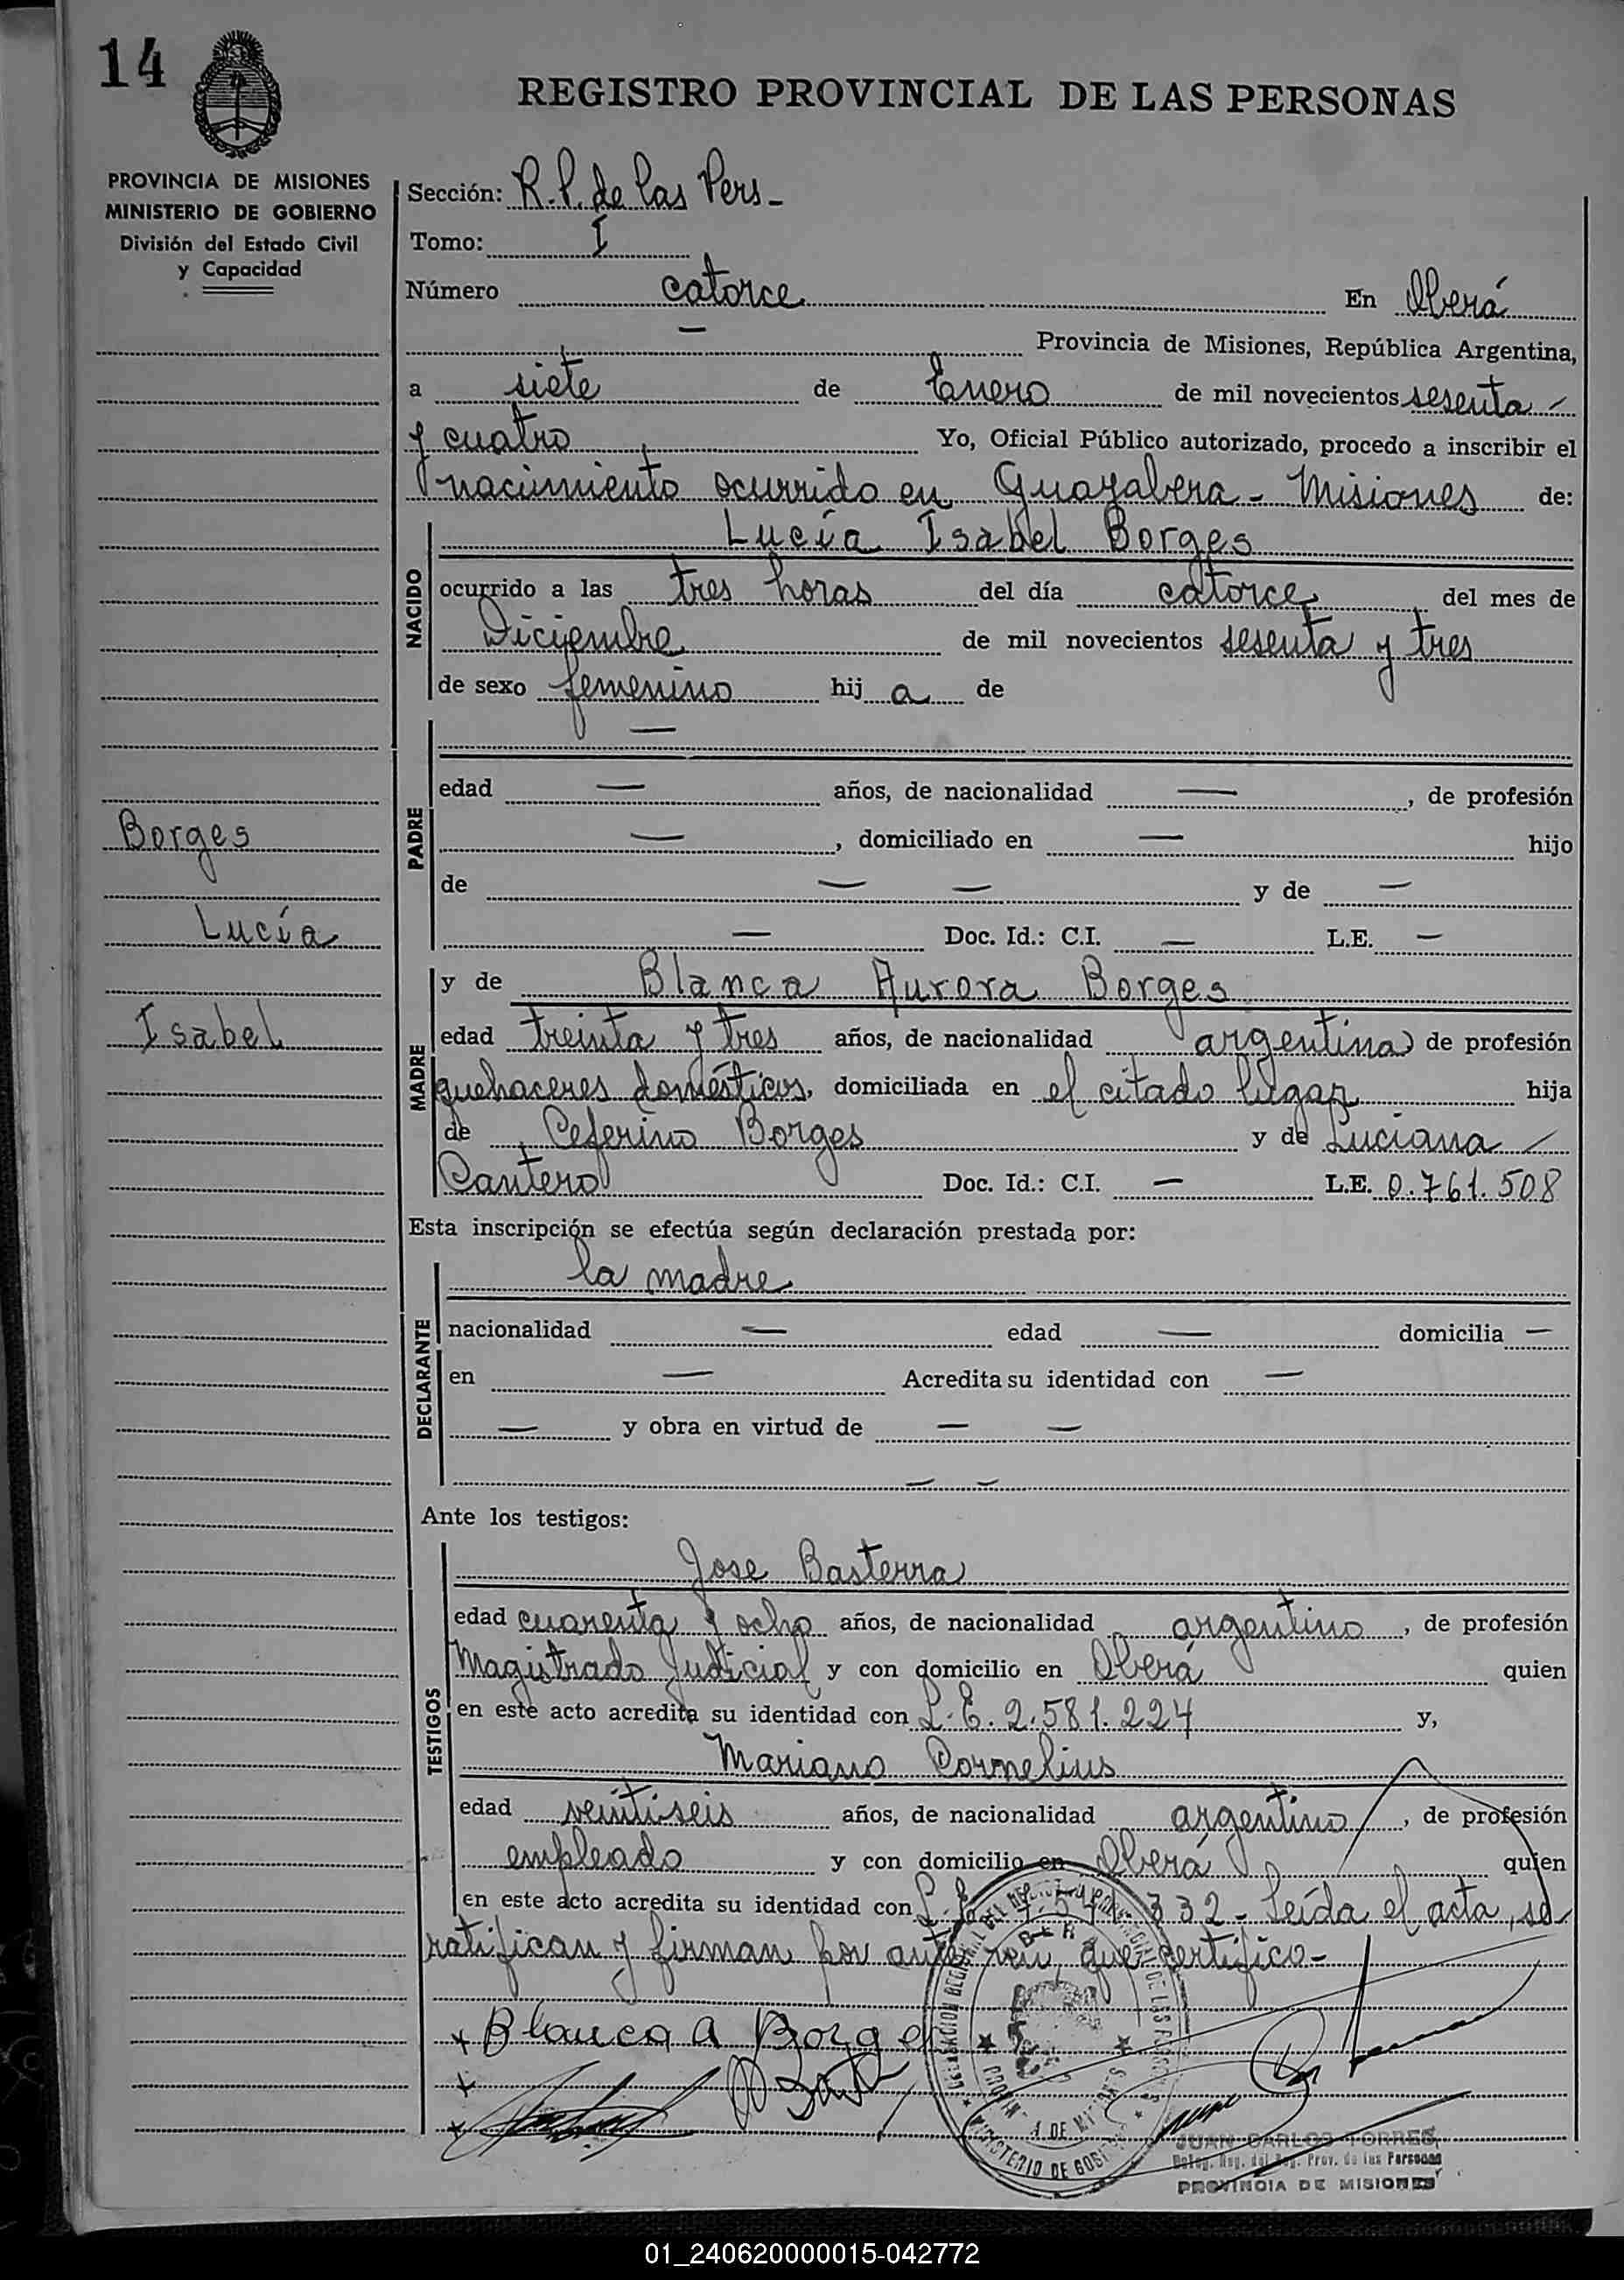 14
REGISTRO PROVINCIAL DE LAS PERSONAS
PROVINCIA DE MISIONES
MINISTERIO DE GOBIERNO
División del Estado Civil
y Capacidad
Sección: R.P. de las Pers -
Tomo: I
Número catorce En Oberá
— Provincia de Misiones, República Argentina,
a siete de Enero de mil novecientos sesenta
y cuatro Yo, Oficial Público autorizado, procedo a inscribir el
nacimiento ocurrido en Guayabera - Misiones de:
NACIDO
Lucía Isabel Borges
ocurrido a las tres horas del día catorce del mes de
Diciembre de mil novecientos sesenta y tres
de sexo femenino hij a de
PADRE
—
edad — años, de nacionalidad —, de profesión
—, domiciliado en — hijo
de — — y de —
— Doc. Id.: C.I. — L.E. —
Borges
Lucía
Isabel
MADRE
y de Blanca Aurora Borges
edad treinta y tres años, de nacionalidad argentina de profesión
quehaceres domésticos, domiciliada en el citado lugar hija
de Ceferino Borges y de Luciana
Cantero Doc. Id.: C.I. — L.E. 0.761.508
Esta inscripción se efectúa según declaración prestada por:
DECLARANTE
la madre
nacionalidad — edad — domicilia —
en — Acredita su identidad con —
— y obra en virtud de — —
— —
Ante los testigos:
TESTIGOS
Jose Basterra
edad cuarenta y ocho años, de nacionalidad argentino, de profesión
Magistrado Judicial y con domicilio en Oberá quien
en este acto acredita su identidad con L.E. 2.581.224 y,
Mariano Cornelius
edad veintiseis años, de nacionalidad argentino, de profesión
empleado y con domicilio en Oberá quien
en este acto acredita su identidad con L.E. 332 - Leída el acta, se
ratifican y firman por ante mi, que certifico -
Blanca A Borges
MINISTERIO DE GOBIERNO
JUAN CARLOS TORRES
Deleg. Reg. del Reg. Prov. de las Personas
PROVINCIA DE MISIONES
01_240620000015-042772